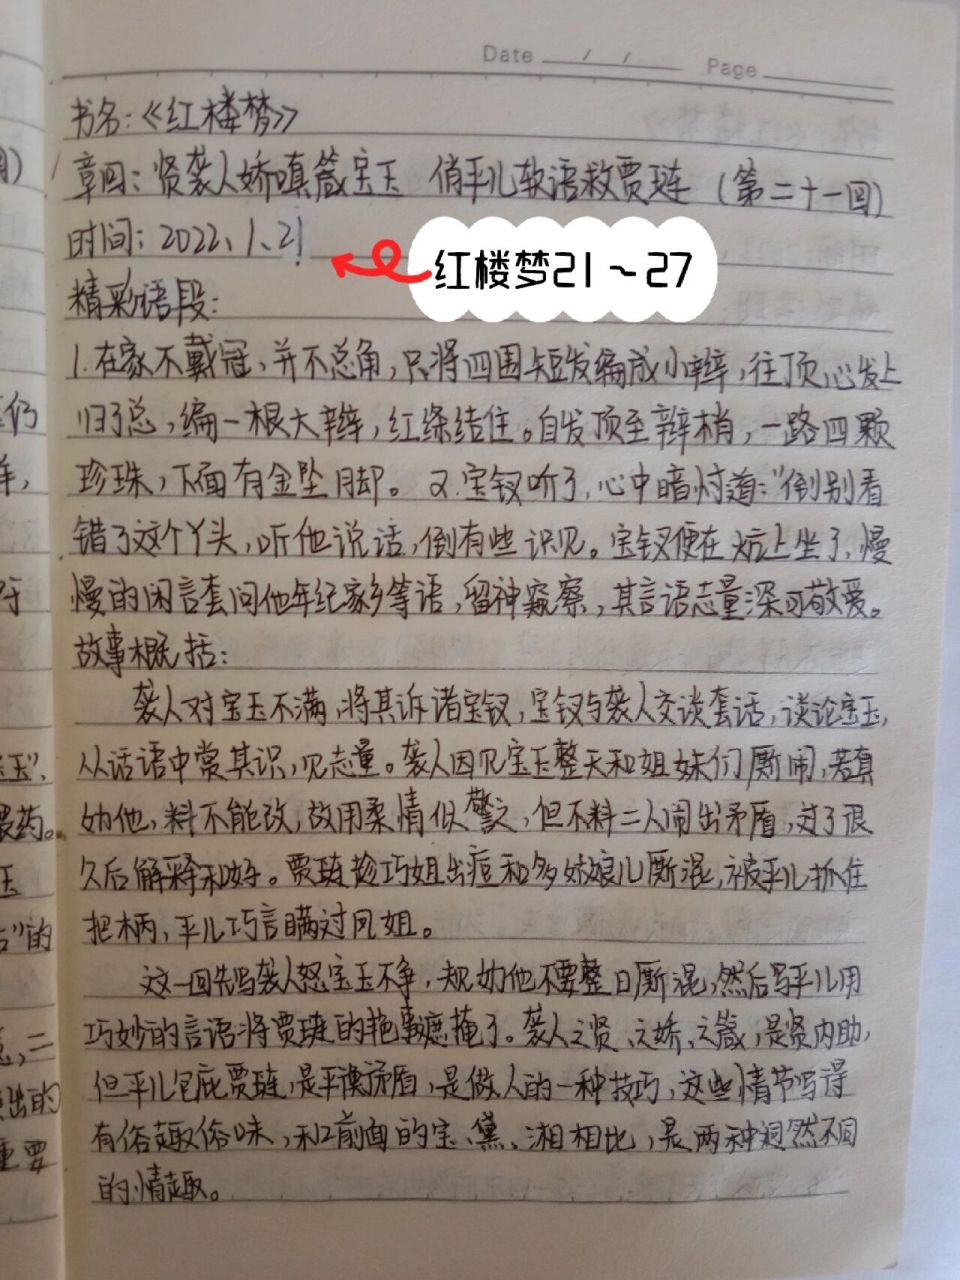 Date / / Page
书名：《红楼梦》
章回：贤袭人娇嗔箴宝玉 俏平儿软语救贾琏（第二十一回）
时间：2022、1、21
红楼梦21～27
精彩语段：
1.在家不戴冠，并不总角，只将四围短发编成小辫，往顶心发上
归了总，编一根大辫，红绦结住。自发顶至辫梢，一路四颗
珍珠，下面有金坠脚。2.宝钗听了，心中暗忖道："倒别看
错了这个丫头，听他说话，倒有些识见。宝钗便在炕上坐了，慢
慢的闲言套问他年纪家乡等语，留神窥察，其言语志量深可敬爱。
故事概括：
袭人对宝玉不满，将其诉诸宝钗，宝钗与袭人交谈套话，谈论宝玉，
从话语中赏其识，见志量。袭人因见宝玉整天和姐妹们厮闹，若真
劝他，料不能改，故用柔情似警之，但不料二人闹出矛盾，过了很
久后解释和好。贾琏趁巧姐出痘和多姑娘儿厮混，被平儿抓住
把柄，平儿巧言瞒过凤姐。
这一回先写袭人怒宝玉不争，规劝他不要整日厮混，然后写平儿用
巧妙的言语将贾琏的艳事遮掩了。袭人之贤、之娇、之箴，是贤内助，
但平儿包庇贾琏，是平衡矛盾，是做人的一种技巧，这些情节写得
有俗趣俗味，和前面的宝、黛、湘相比，是两种迥然不同
的情趣。
仍
玉"，
喂药。
玉
"的
，二
出的
重要